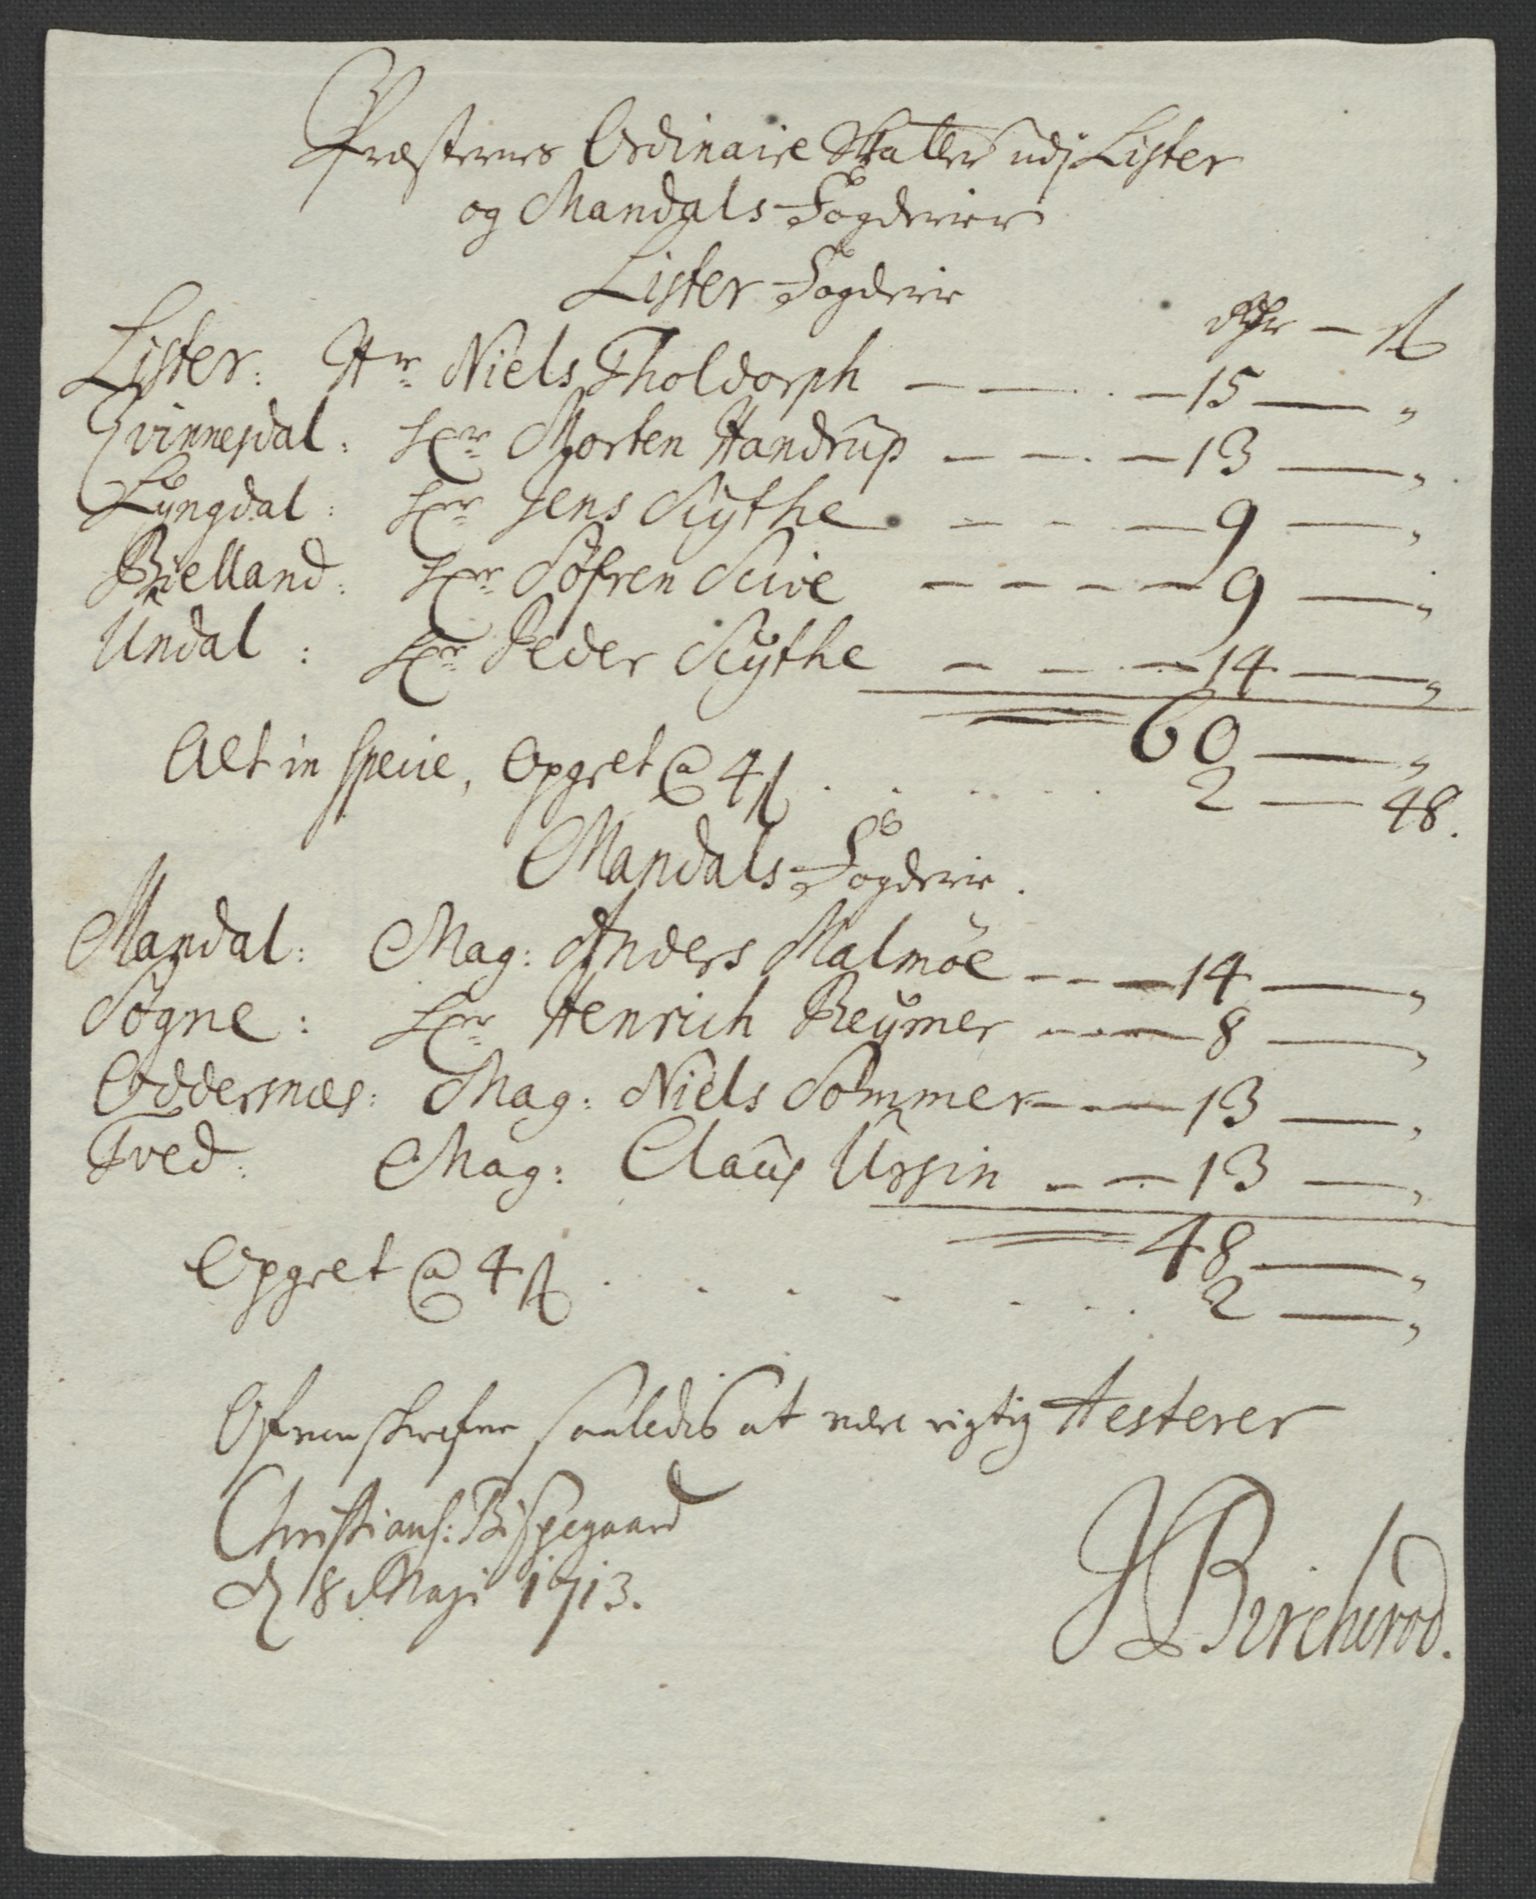 Præsternes Ordinaire Skatter udj Lister
og Mandals Fogderier
Lister Fogderie
Rdr — ß
Lister: Hr Niels Tholdorph — — — 15 — "
Qvinnesdal: Hr Morten Handrup — — — 13 — "
Lyngdal: Hr Jens Scythe — — — 9 — "
Bielland: Hr Søfren Scive — — — — 9 — "
Undal: Hr Peder Scythe — — — 14 — "
60 — "
Alt in specie, Opgælt @ 4 ß . . . . . 2 — 48.
Mandals Fogderie.
Mandal: Mag: Anders Malmøe — — — 14 — "
Søgne: Hr Henrich Reymer — — — 8 — "
Oddernæs: Mag: Niels Sommer — — — 13 — "
Tved: Mag: Claus Ursin — — 13 — "
48 — "
Opgælt @ 4 ß . . . . . . . 2 — "
Ofvenskrefne saaledis at være rigtig Attesterer
Christians: Bispegaard
d 8 Maji 1713.
J Bircherod.